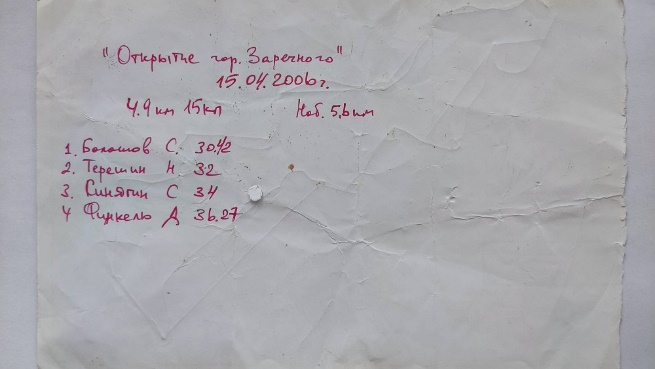 "Открытие гор. Заречного"
15.04.2006г.
4.9 км 15кп Наб. 5,6 км
1. Балашов С. 30.42
2. Терешин Н. 32
3. Синягин С 34
4 Финкель Д 36.27